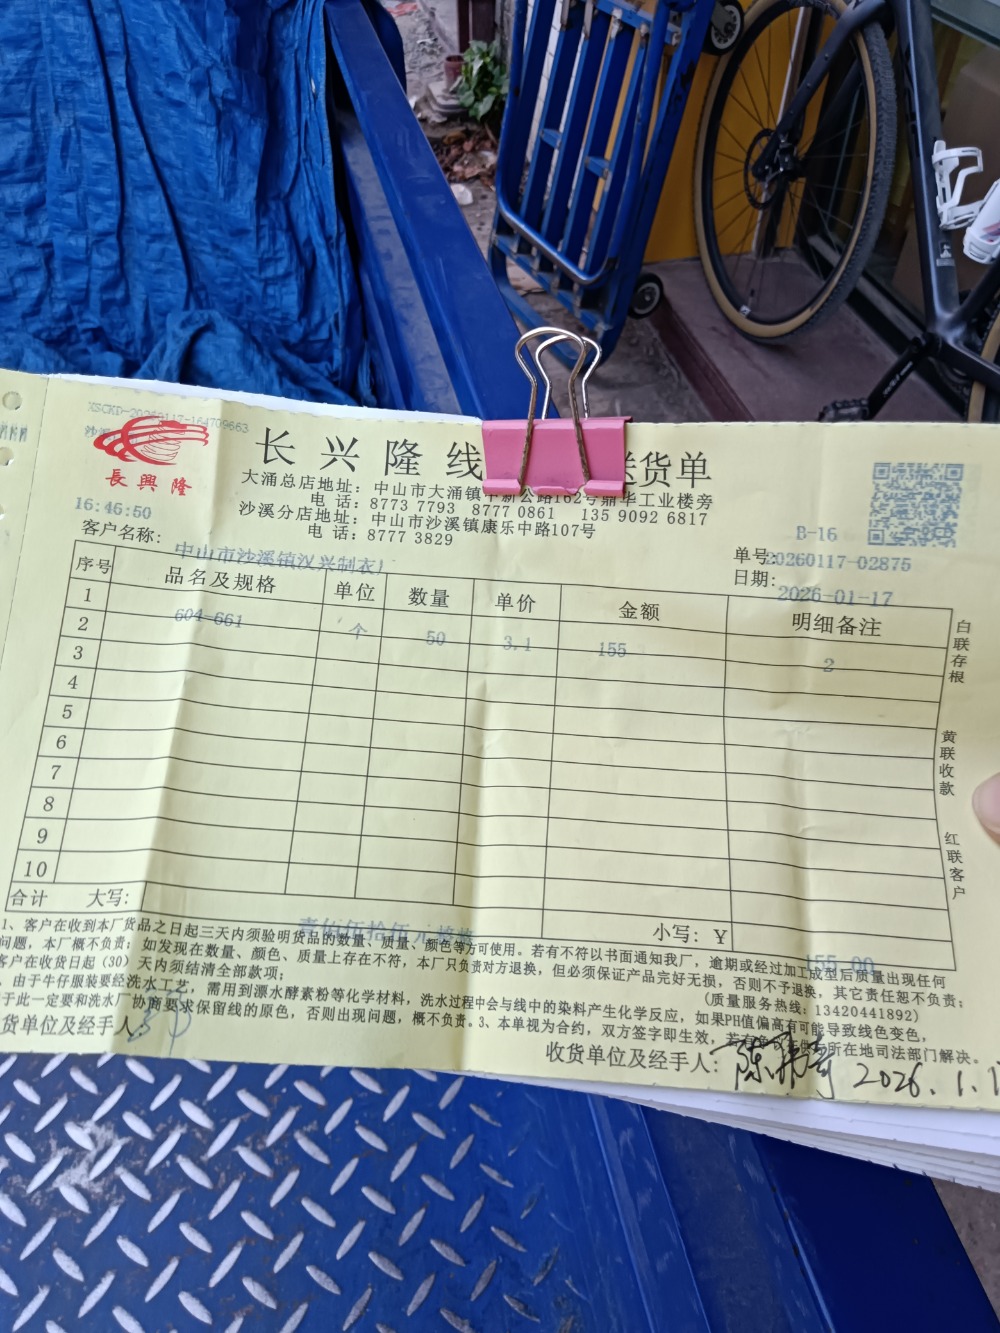 XSCKD-20260117-164709663
沙溪
長興隆
长兴隆线 送货单
大涌总店地址：中山市大涌镇中新公路162号鼎华工业楼旁
电 话：8773 7793 8777 0861 135 9092 6817
沙溪分店地址：中山市沙溪镇康乐中路107号
电 话：8777 3829
16:46:50
B-16
客户名称：中山市沙溪镇汉兴制衣厂
单号:20260117-02875
日期：2026-01-17
序号 品名及规格 单位 数量 单价 金额 明细备注
1 604-661 个 50 3.1 155 2
2
3
4
5
6
7
8
9
10
合计 大写：壹佰伍拾伍元 小写：￥155.00
白联存根
黄联收款
红联客户
1、客户在收到本厂货品之日起三天内须验明货品的数量、质量、颜色等方可使用。若有不符以书面通知我厂，逾期或经过加工成型后质量出现任何
问题，本厂概不负责；如发现在数量、颜色、质量上存在不符，本厂只负责对方退换，但必须保证产品完好无损，否则不予退换，其它责任恕不负责；
客户在收货日起（30）天内须结清全部款项；
（质量服务热线：13420441892）
、由于牛仔服装要经洗水工艺，需用到漂水酵素粉等化学材料，洗水过程中会与线中的染料产生化学反应，如果PH值偏高有可能导致线色变色，
于此一定要和洗水厂协商要求保留线的原色，否则出现问题，概不负责。3、本单视为合约，双方签字即生效，若有 所在地司法部门解决。
货单位及经手人：
收货单位及经手人： 2026.1.1